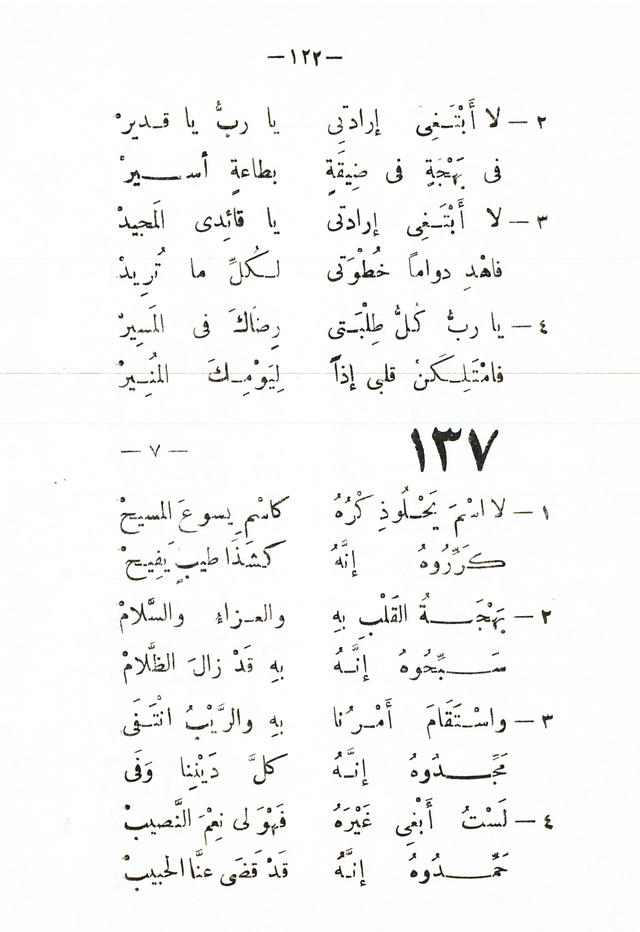 —١٢٢—
٢ — لا أَبْتَـغِى إرادتِى يا ربُّ يا قـديرْ
فى بَهْجَةٍ فى ضِيقَةٍ بطاعةٍ أســيرْ
٣ — لا أَبْتَـغِى إرادتى يا قائِدى المَجيدْ
فاهْدِ دواماً خُطْوَتى لـكُلِّ ما تُريدْ
٤ — يا ربُّ كلُّ طِلْبَـتى رِضاكَ فى المَسِيرْ
فامْتَلِـكَنْ قلبى إذاً لِيَوْمِـكَ المُنِـيرْ
١٣٧ — ٧ —
١ — لا اسْمَ يَحْـلُو ذِكْرُهُ كاسْمِ يسوعَ المسيحْ
كَرِّرُوهُ إنَّهُ كشَذَا طيبٍ يَفِيـحْ
٢ — بَهْجَـةُ القَلْبِ بهِ والعـزاءُ والسَّلامْ
سَـبِّحُوهُ إنَّـهُ بهِ قَدْ زالَ الظَّلامْ
٣ — واسْـتَقَامَ أَمْـرُنا بهِ والرَّيْبُ انْتَـفَى
مَجِّـدُوهُ إنَّـهُ كلَّ دَيْنِنا وَفَى
٤ — لَسْتُ أَبْغِى غَيْرَهُ فَهْوَ لى نِعْمَ النَّصيبْ
حَمِّـدُوهُ إنَّـهُ قَدْ قَضَى عنَّا الحبيبْ